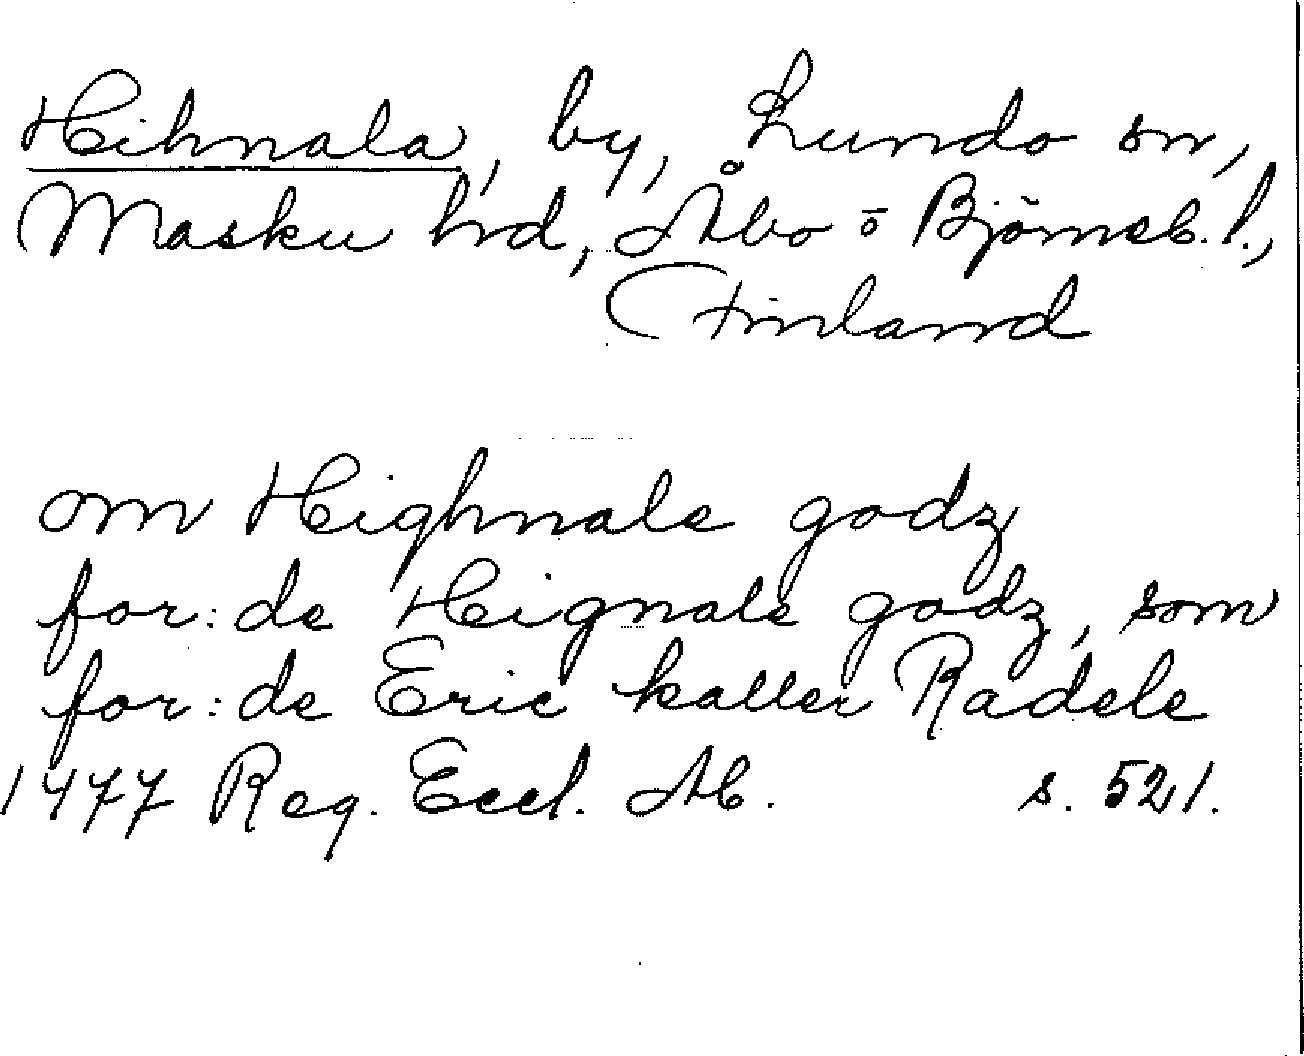 Hihnala, by, Lundo sn,
Masku hd, Åbo o Björneb. l.,
Finland
om Highnale godz
for: de Hignale godz, som
for: de Eric kaller Radele
1477 Reg. Eccl. Ab. s. 521.